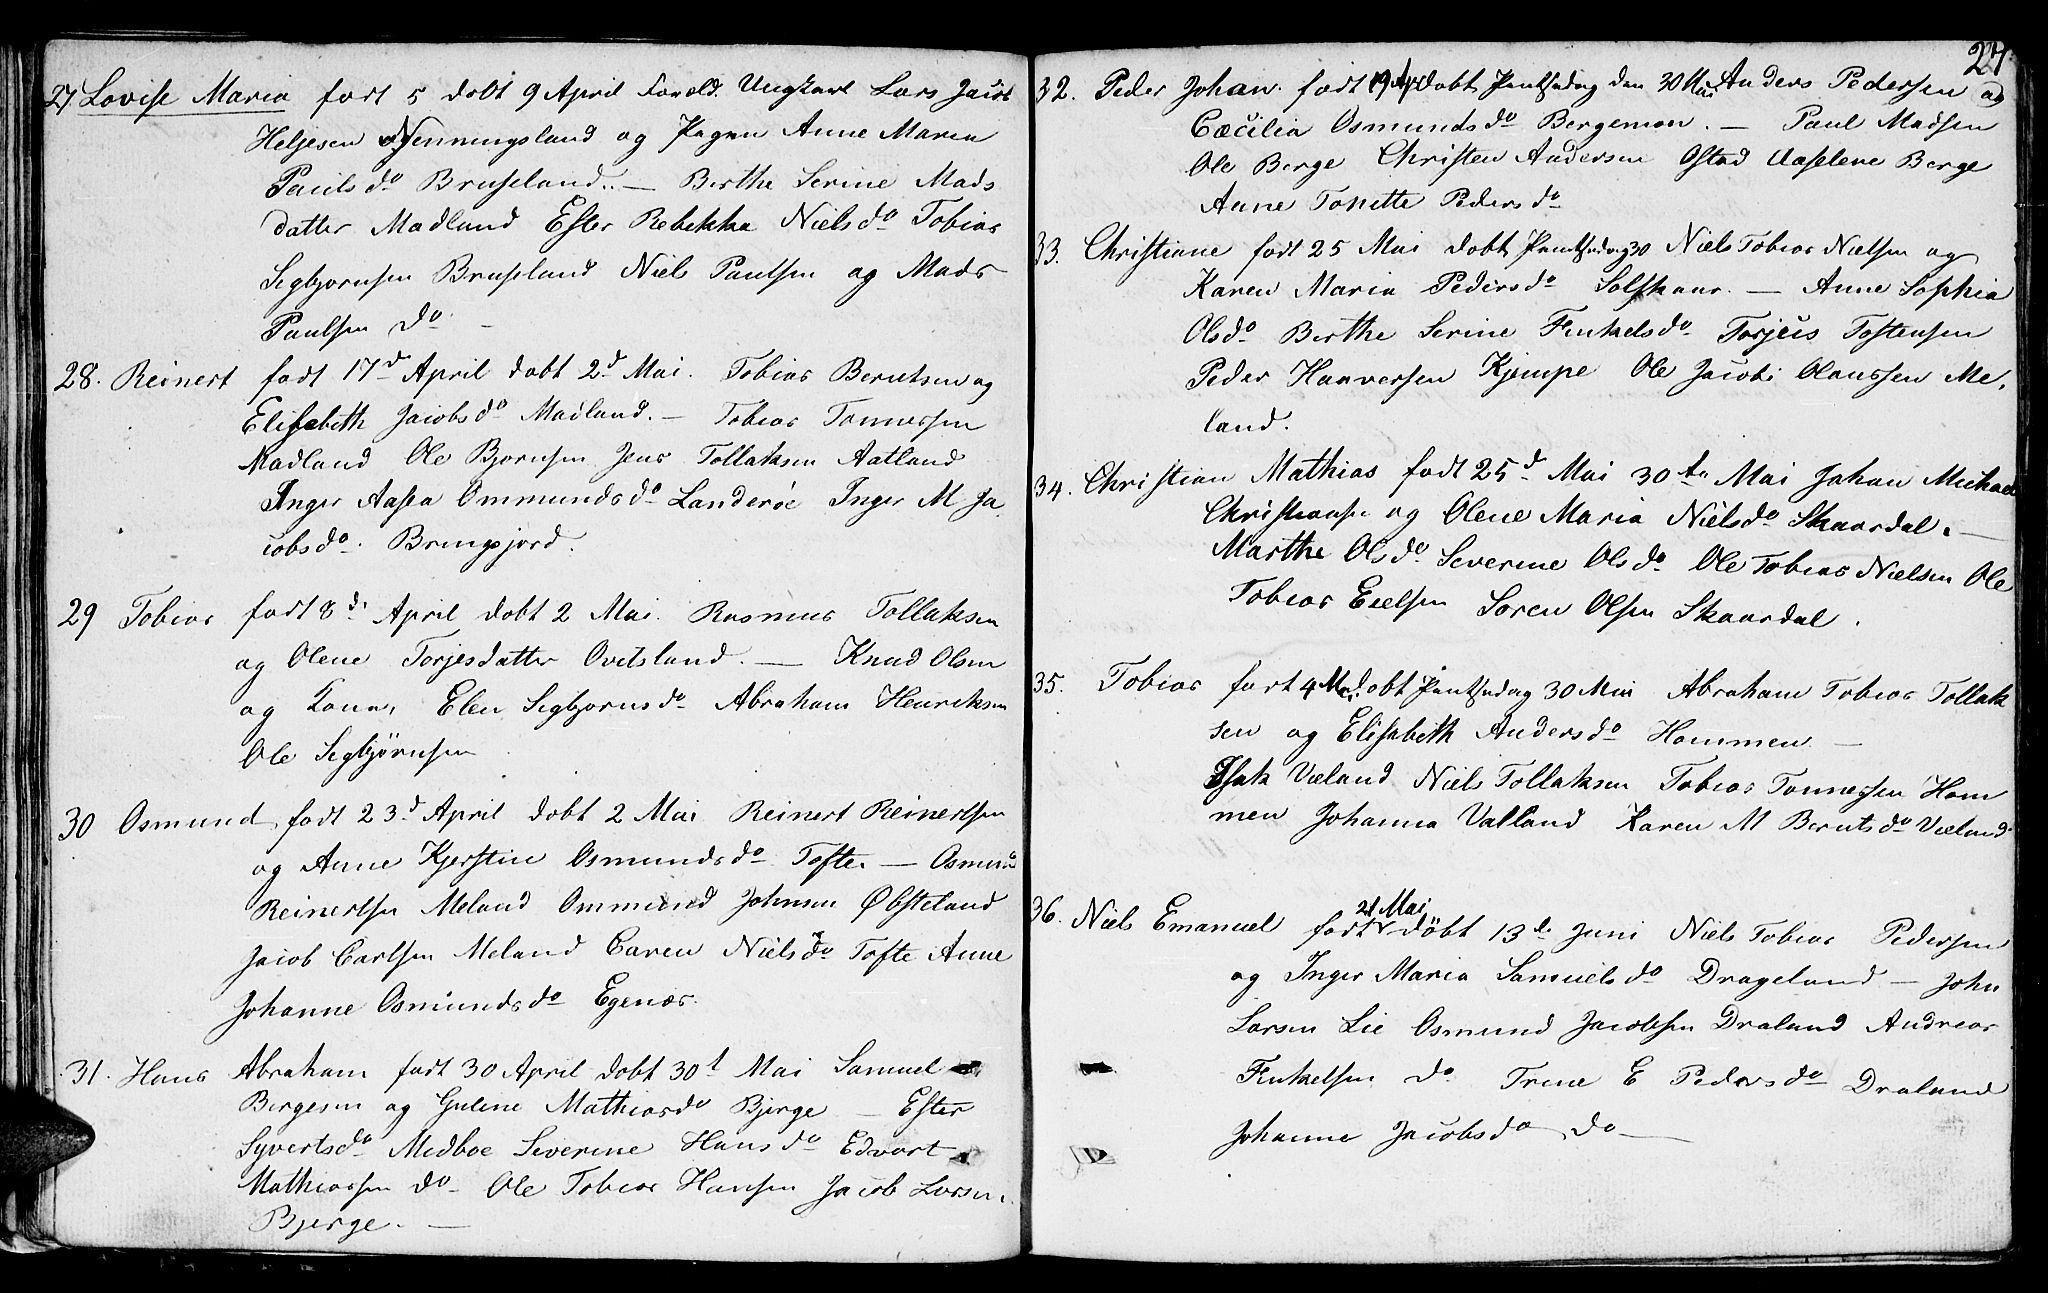 27 Lovise Maria født 5 døbt 9 April Foræld. Ungkarl Lars Jacob
Heljesen Njenningsland og Pigen Anne Maria
Paulsdo Bruseland. — Berthe Serine Mads
datter Madland Ester Rebekka Nielsdo Tobias
Segbjornsen Bruseland Niels Paulsen og Mads
Paulsen do –
28. Reinert født 17d April døbt 2d Mai. Tobias Berntsen og
Elisabeth Jacobsdo Madland. — Tobias Tønnessen
Madland Ole Bjørnsen Jens Tollaksen Aatland
Inger Aasea Ommundsdo Landerøe Inger M Ja
cobsdo. Bringsjord.
29 Tobias født 8d April døbt 2 Mai. Rasmus Tollaksen
og Olene Torjesdatter Ovitsland. — Knud Olsen
og Kone, Elen Segbjornsdo Abraham Henriksen
Ole Segbjörnsen
30 Osmund, født 23d April døbt 2 Mai Reinert Reinertsen
og Anne Kjerstine Osmundsdo Tofte. — Osmund
Reinertsen Meland Ommund Johnsen Øbsteland
Jacob Carlsen Meland Caren Nielsdo Tofte Anne
Johanne Osmundsdo Egenæs.
31. Hans Abraham født 30 April døbt 30t Mai Samuel
Bergesen og Gulene Mathiasdo Bjerge — Ester
Syvertsdo Medboe Severine Hansdo Edvart
Mathiassen do – Ole Tobias Hansen Jacob Larsen
Bjerge. —
27
32. Peder Johan. født 19 Apr døbt Pintsedag den 30 Mai Anders Pedersen og
Cæcilia Osmundsdo Bergemon. — Paul Madsen
Ole Berge Christen Andersen Ostad Aaselene Berge
Anne Tonette Pedersdo
33. Christiane født 25 Mai døbt Pintsedag 30 Niels Tobias Nielsen og
Karen Maria Pedersdo Solskaar. — Anne Sophia
Olsdo Berthe Serine Finkelsdo Torjeus Tostensen
Peder Haaversen Kjempe Ole Jacob Olaussen Me,
land.
34. Christian Mathias født 25d Mai 30te Mai Johan Michael
Christiansen og Olene Maria Nielsdo Skaardal. —
Marthe Olsdo Severine Olsdo Ole Tobias Nielsen Ole
Tobias Eielsen Søren Olsen Skaardal.
35. Tobias født 4 Mai døbt Pintsedag 30 Mai Abraham Tobias Tollak
sen og Elisabeth Andersdo Hommen —
Isak Væland Niels Tollaksen Tobias Tønnessen Hom
men Johanna Valland Karen M Berntsdo Væland
36. Niels Emanuel født 21 Mai döbt 13de Juni Niels Tobias Pedersen
og Inger Maria Samuelsdo Drageland — John
Larsen Lie Osmund Jacobsen Draland Andreas
Finkelsen do Trine E Pedersdo Draland
Johanne Jacobsdo do —